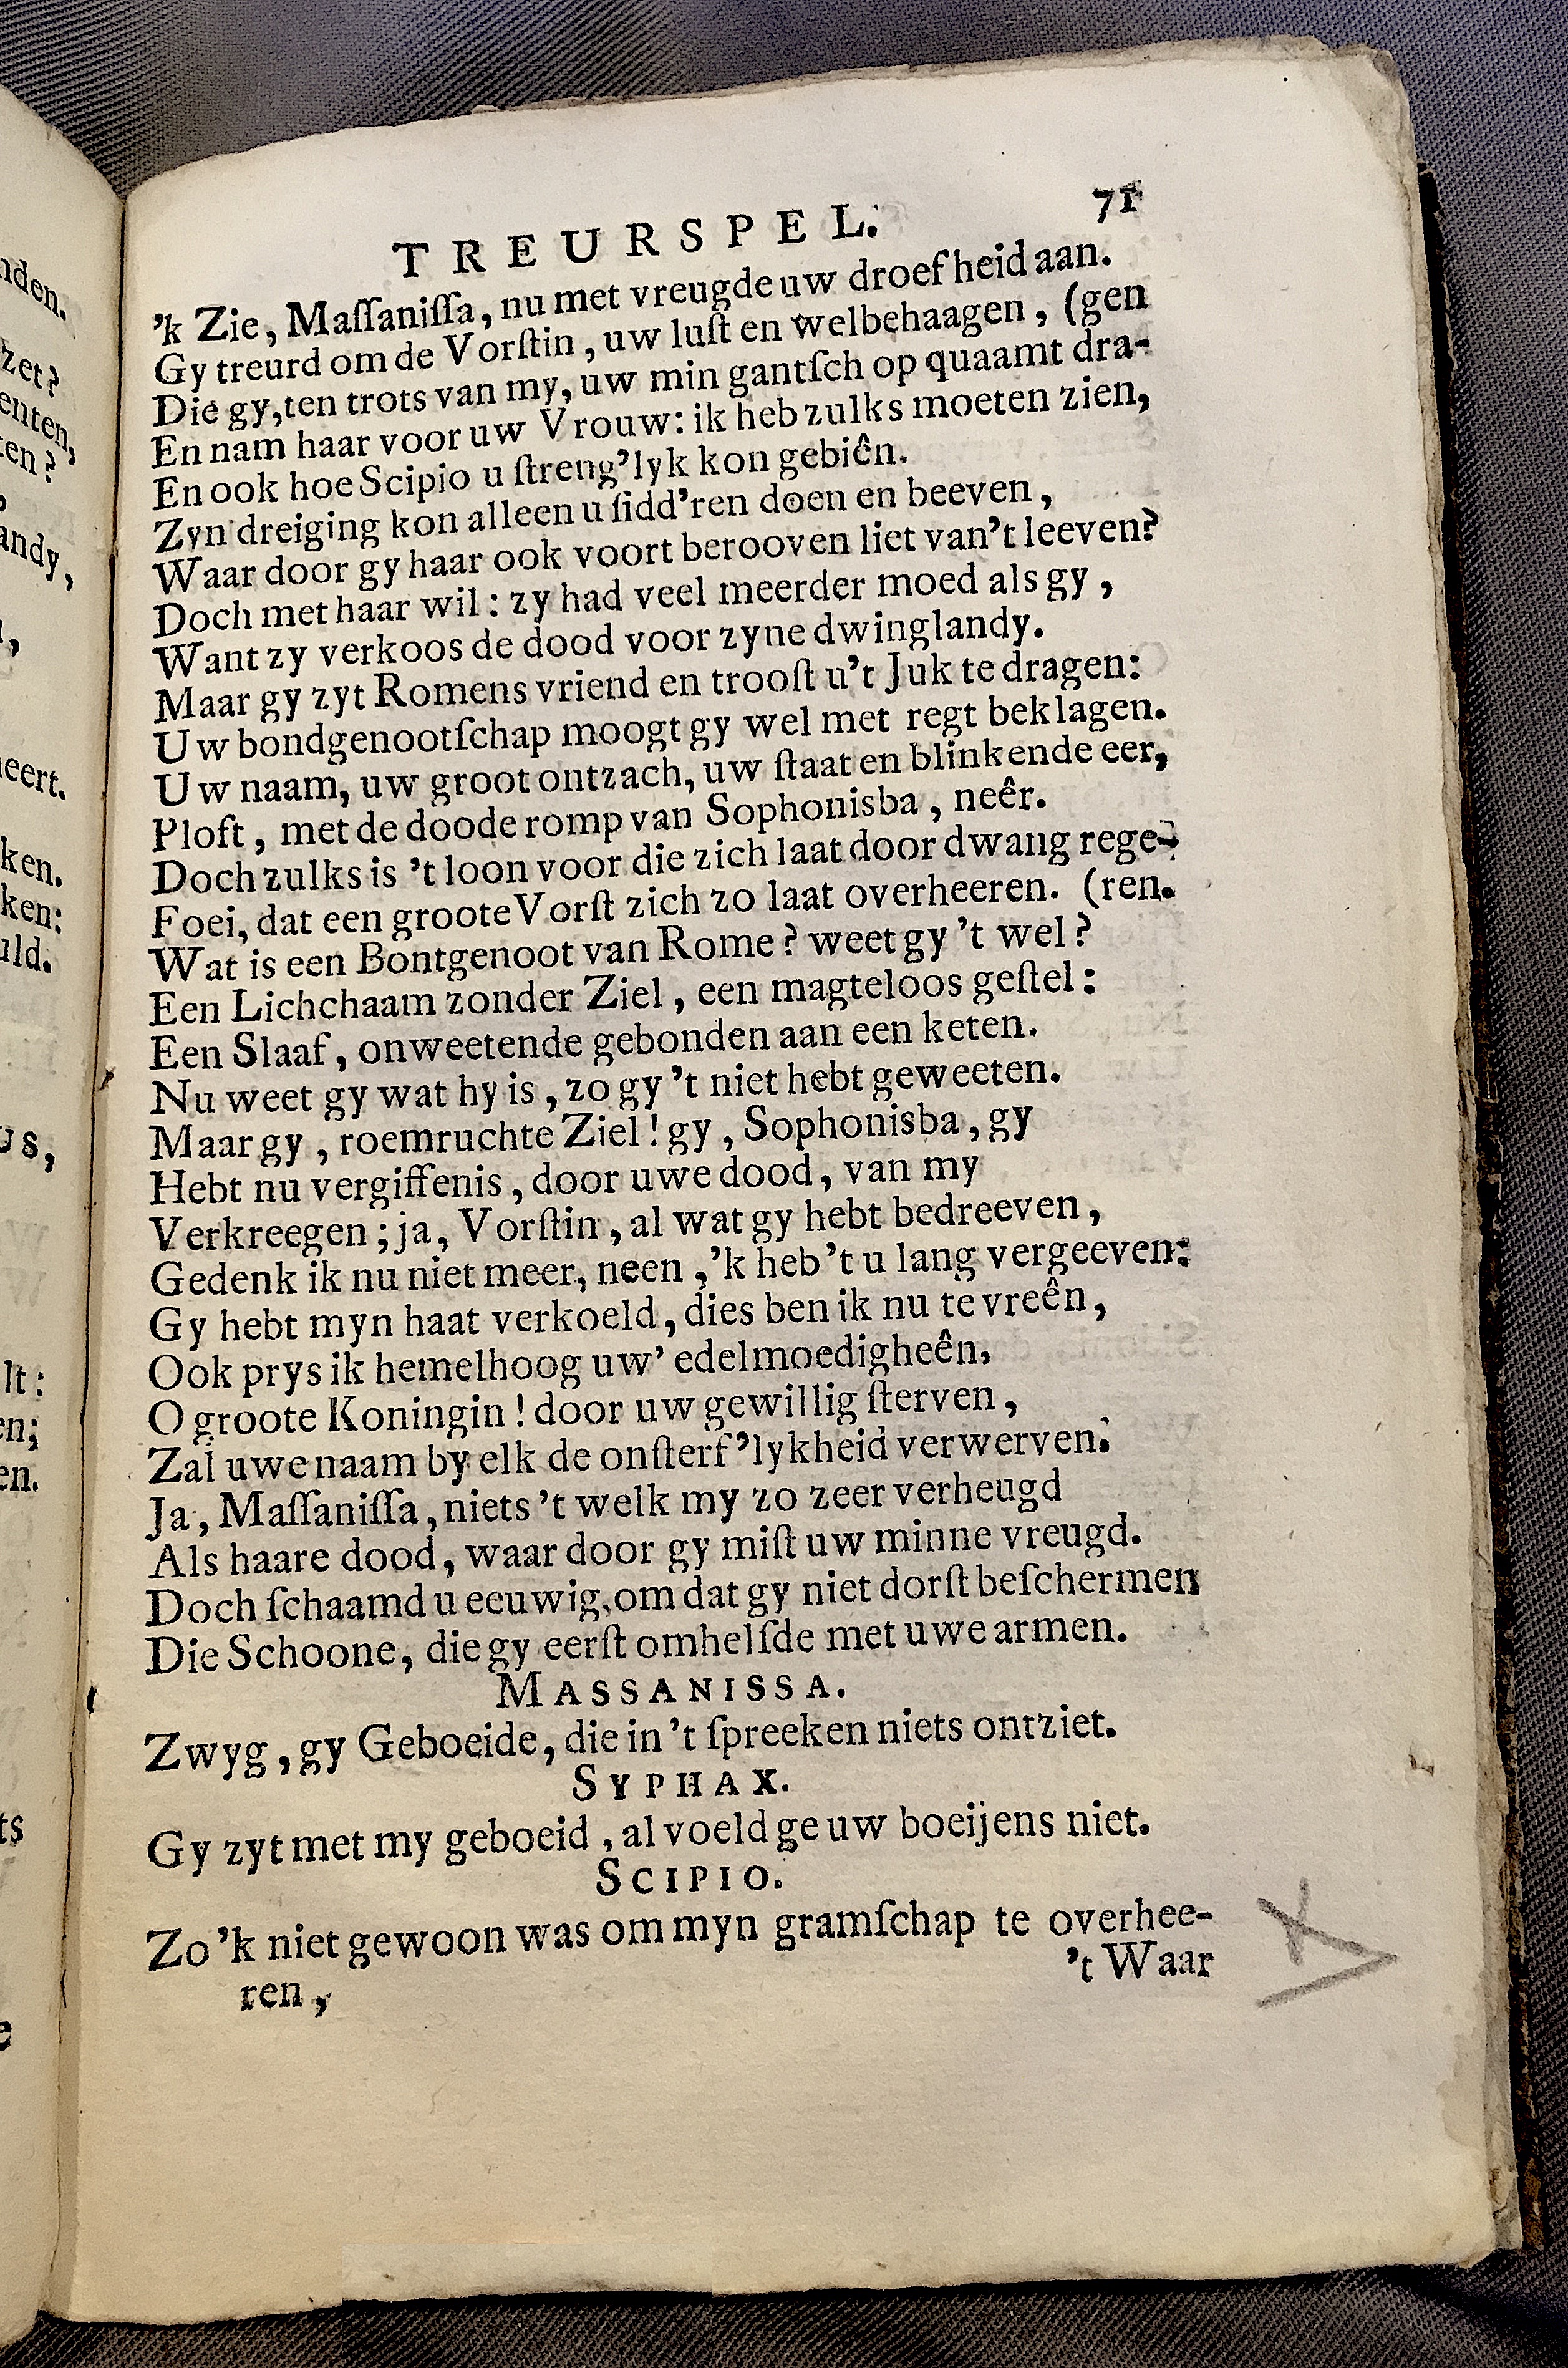 TREURSPEL. 71
'k Zie, Maſſaniſſa, nu met vreugde uw droefheid aan.
Gy treurd om de Vorſtin, uw luſt en welbehaagen, (gen
Die gy, ten trots van my, uw min gantſch op quaamt dra-
En nam haar voor uw Vrouw: ik heb zulks moeten zien,
En ook hoe Scipio u ſtreng'lyk kon gebiên.
Zyn dreiging kon alleen u ſidd'ren doen en beeven,
Waar door gy haar ook voort berooven liet van 't leeven?
Doch met haar wil: zy had veel meerder moed als gy,
Want zy verkoos de dood voor zyne dwinglandy.
Maar gy zyt Romens vriend en trooſt u 't Juk te dragen:
Uw bondgenootſchap moogt gy wel met regt beklagen.
Uw naam, uw groot ontzach, uw ſtaat en blinkende eer,
Ploft, met de doode romp van Sophonisba, neêr.
Doch zulks is 't loon voor die zich laat door dwang rege-
Foei, dat een groote Vorſt zich zo laat overheeren. (ren.
Wat is een Bontgenoot van Rome? weet gy 't wel?
Een Lichchaam zonder Ziel, een magteloos geſtel:
Een Slaaf, onweetende gebonden aan een keten.
Nu weet gy wat hy is, zo gy 't niet hebt geweeten.
Maar gy, roemruchte Ziel! gy, Sophonisba, gy
Hebt nu vergiffenis, door uwe dood, van my
Verkreegen; ja, Vorſtin, al wat gy hebt bedreeven,
Gedenk ik nu niet meer, neen, 'k heb 't u lang vergeeven:
Gy hebt myn haat verkoeld, dies ben ik nu te vreên,
Ook prys ik hemelhoog uw' edelmoedigheên,
O groote Koningin! door uw gewillig ſterven,
Zal uwe naam by elk de onſterf'lykheid verwerven.
Ja, Maſſaniſſa, niets 't welk my zo zeer verheugd
Als haare dood, waar door gy miſt uw minne vreugd.
Doch ſchaamd u eeuwig, om dat gy niet dorſt beſchermen
Die Schoone, die gy eerſt omhelſde met uwe armen.
MASSANISSA.
Zwyg, gy Geboeide, die in 't ſpreeken niets ontziet.
SYPHAX.
Gy zyt met my geboeid, al voeld ge uw boeijens niet.
SCIPIO.
Zo 'k niet gewoon was om myn gramſchap te overhee-
ren, 't Waar
nden.
zet?
enten,
ten?
andy,
neert.
ken.
ken:
uld.
US,
lt:
en;
en.
ts